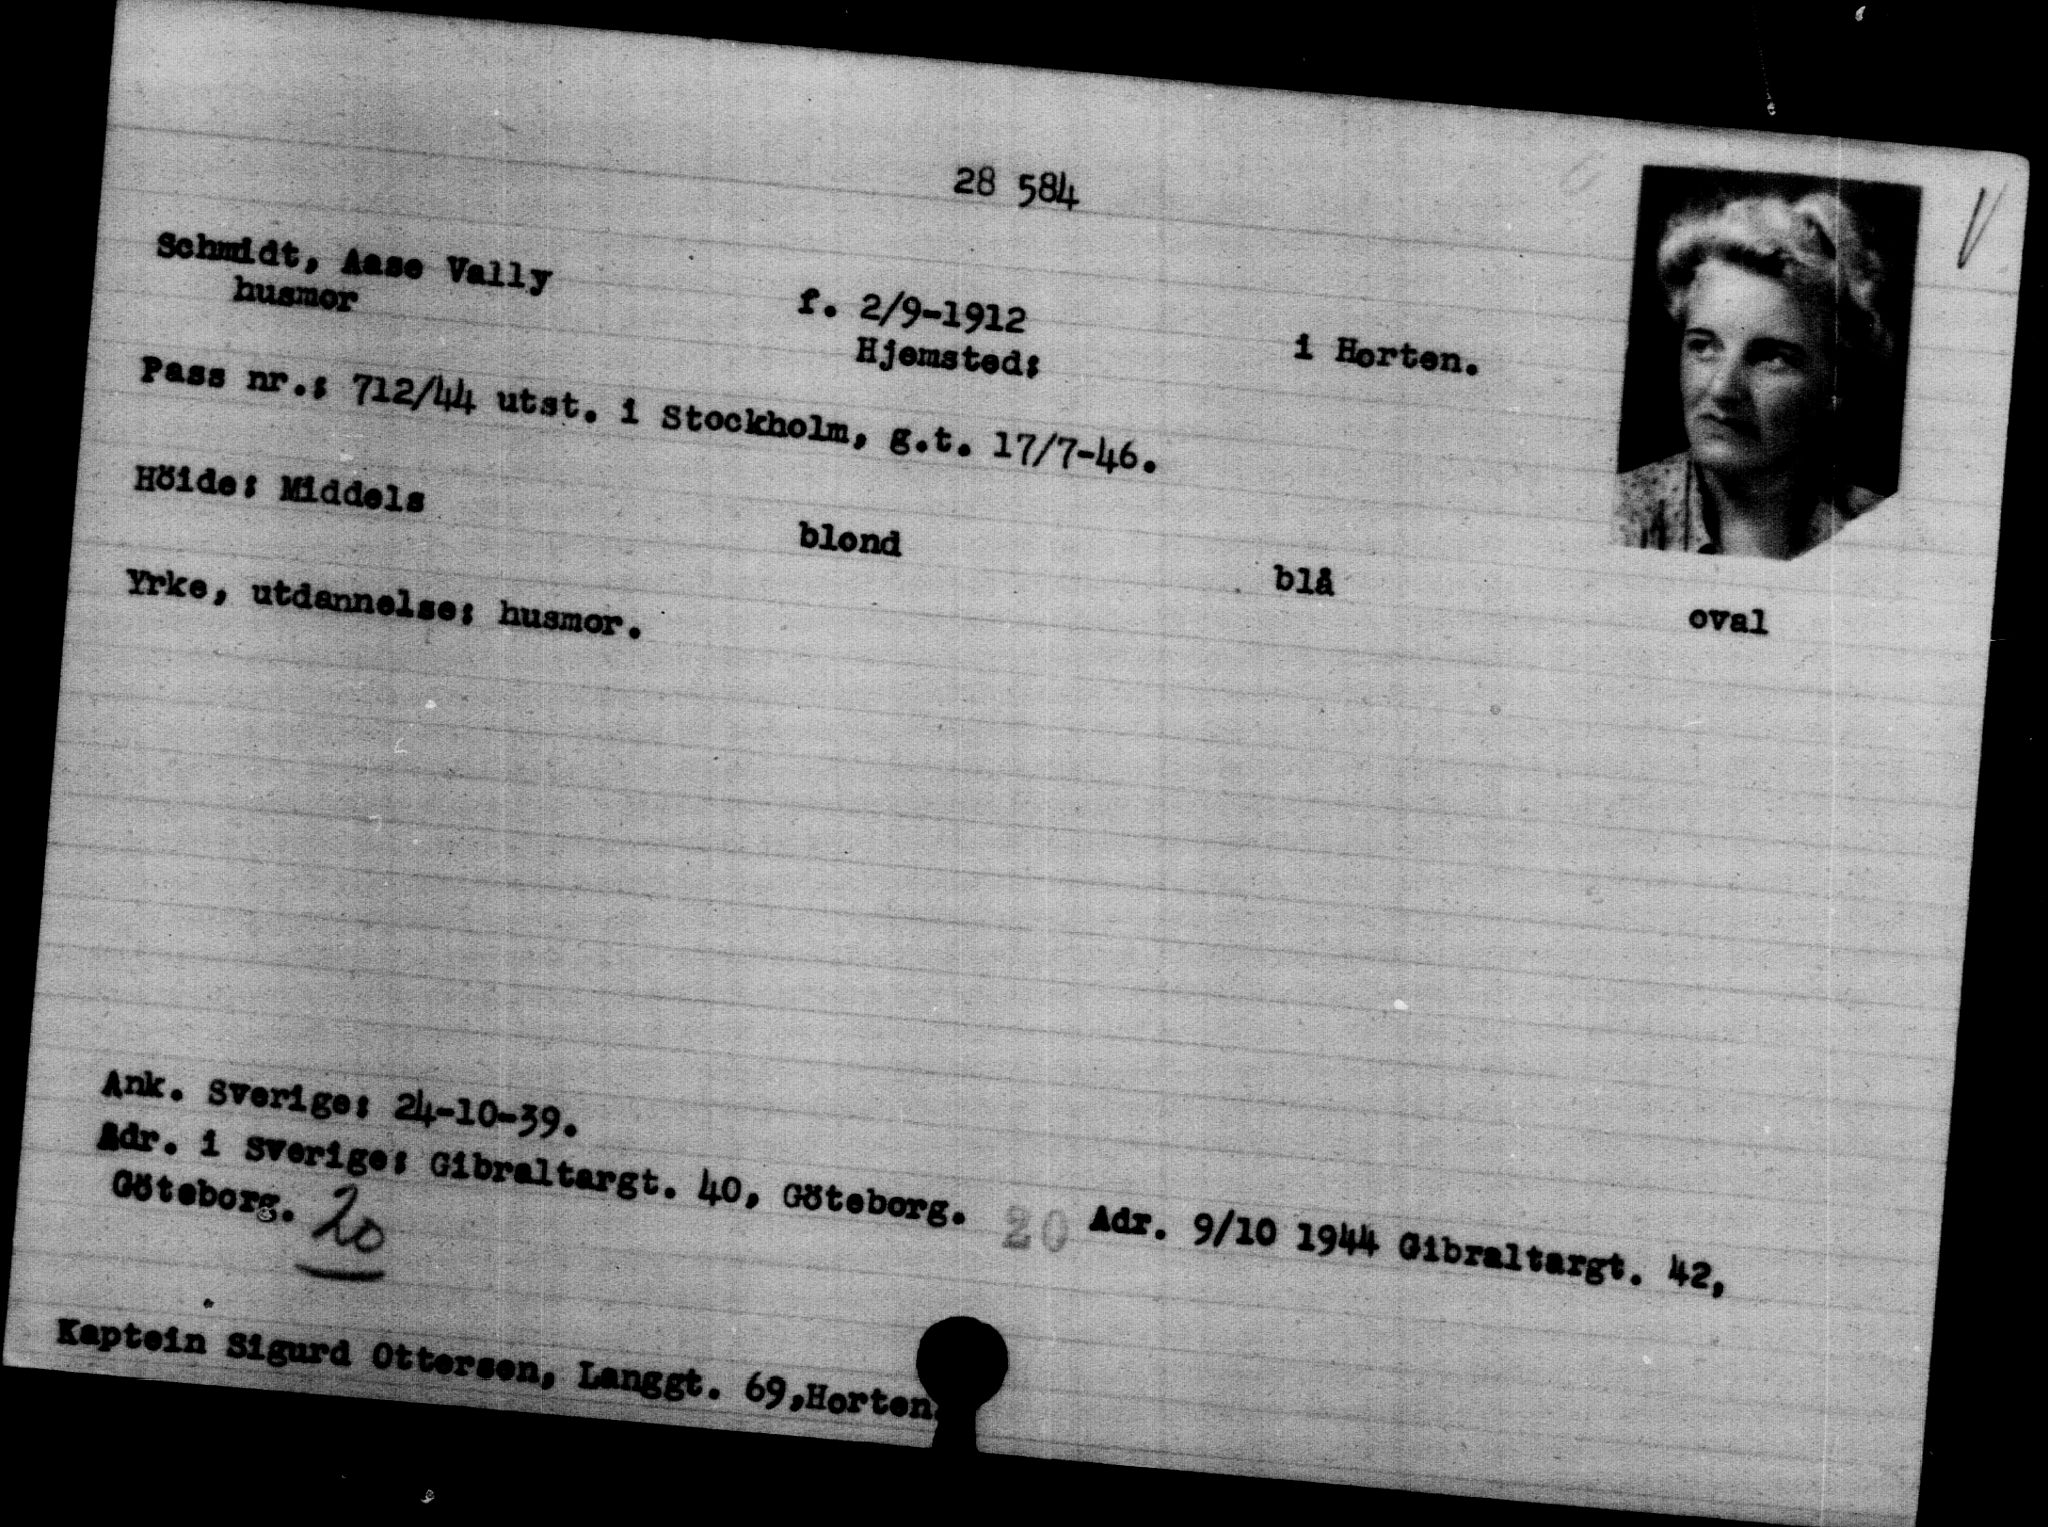 28 584
V
Schmidt, Aase Vally f. 2/9-1912 i Horten.
husmor Hjemsted:
Pass nr.: 712/44 utst. i Stockholm, g.t. 17/7-46.
Höide: Middels blond blå oval
Yrke, utdannelse: husmor.
Ank. Sverige: 24-10-39.
Adr. i Sverige: Gibraltargt. 40, Göteborg. 20 Adr. 9/10 1944 Gibraltargt. 42,
Göteborg. 20
Kaptein Sigurd Ottersen, Langgt. 69,Horten.